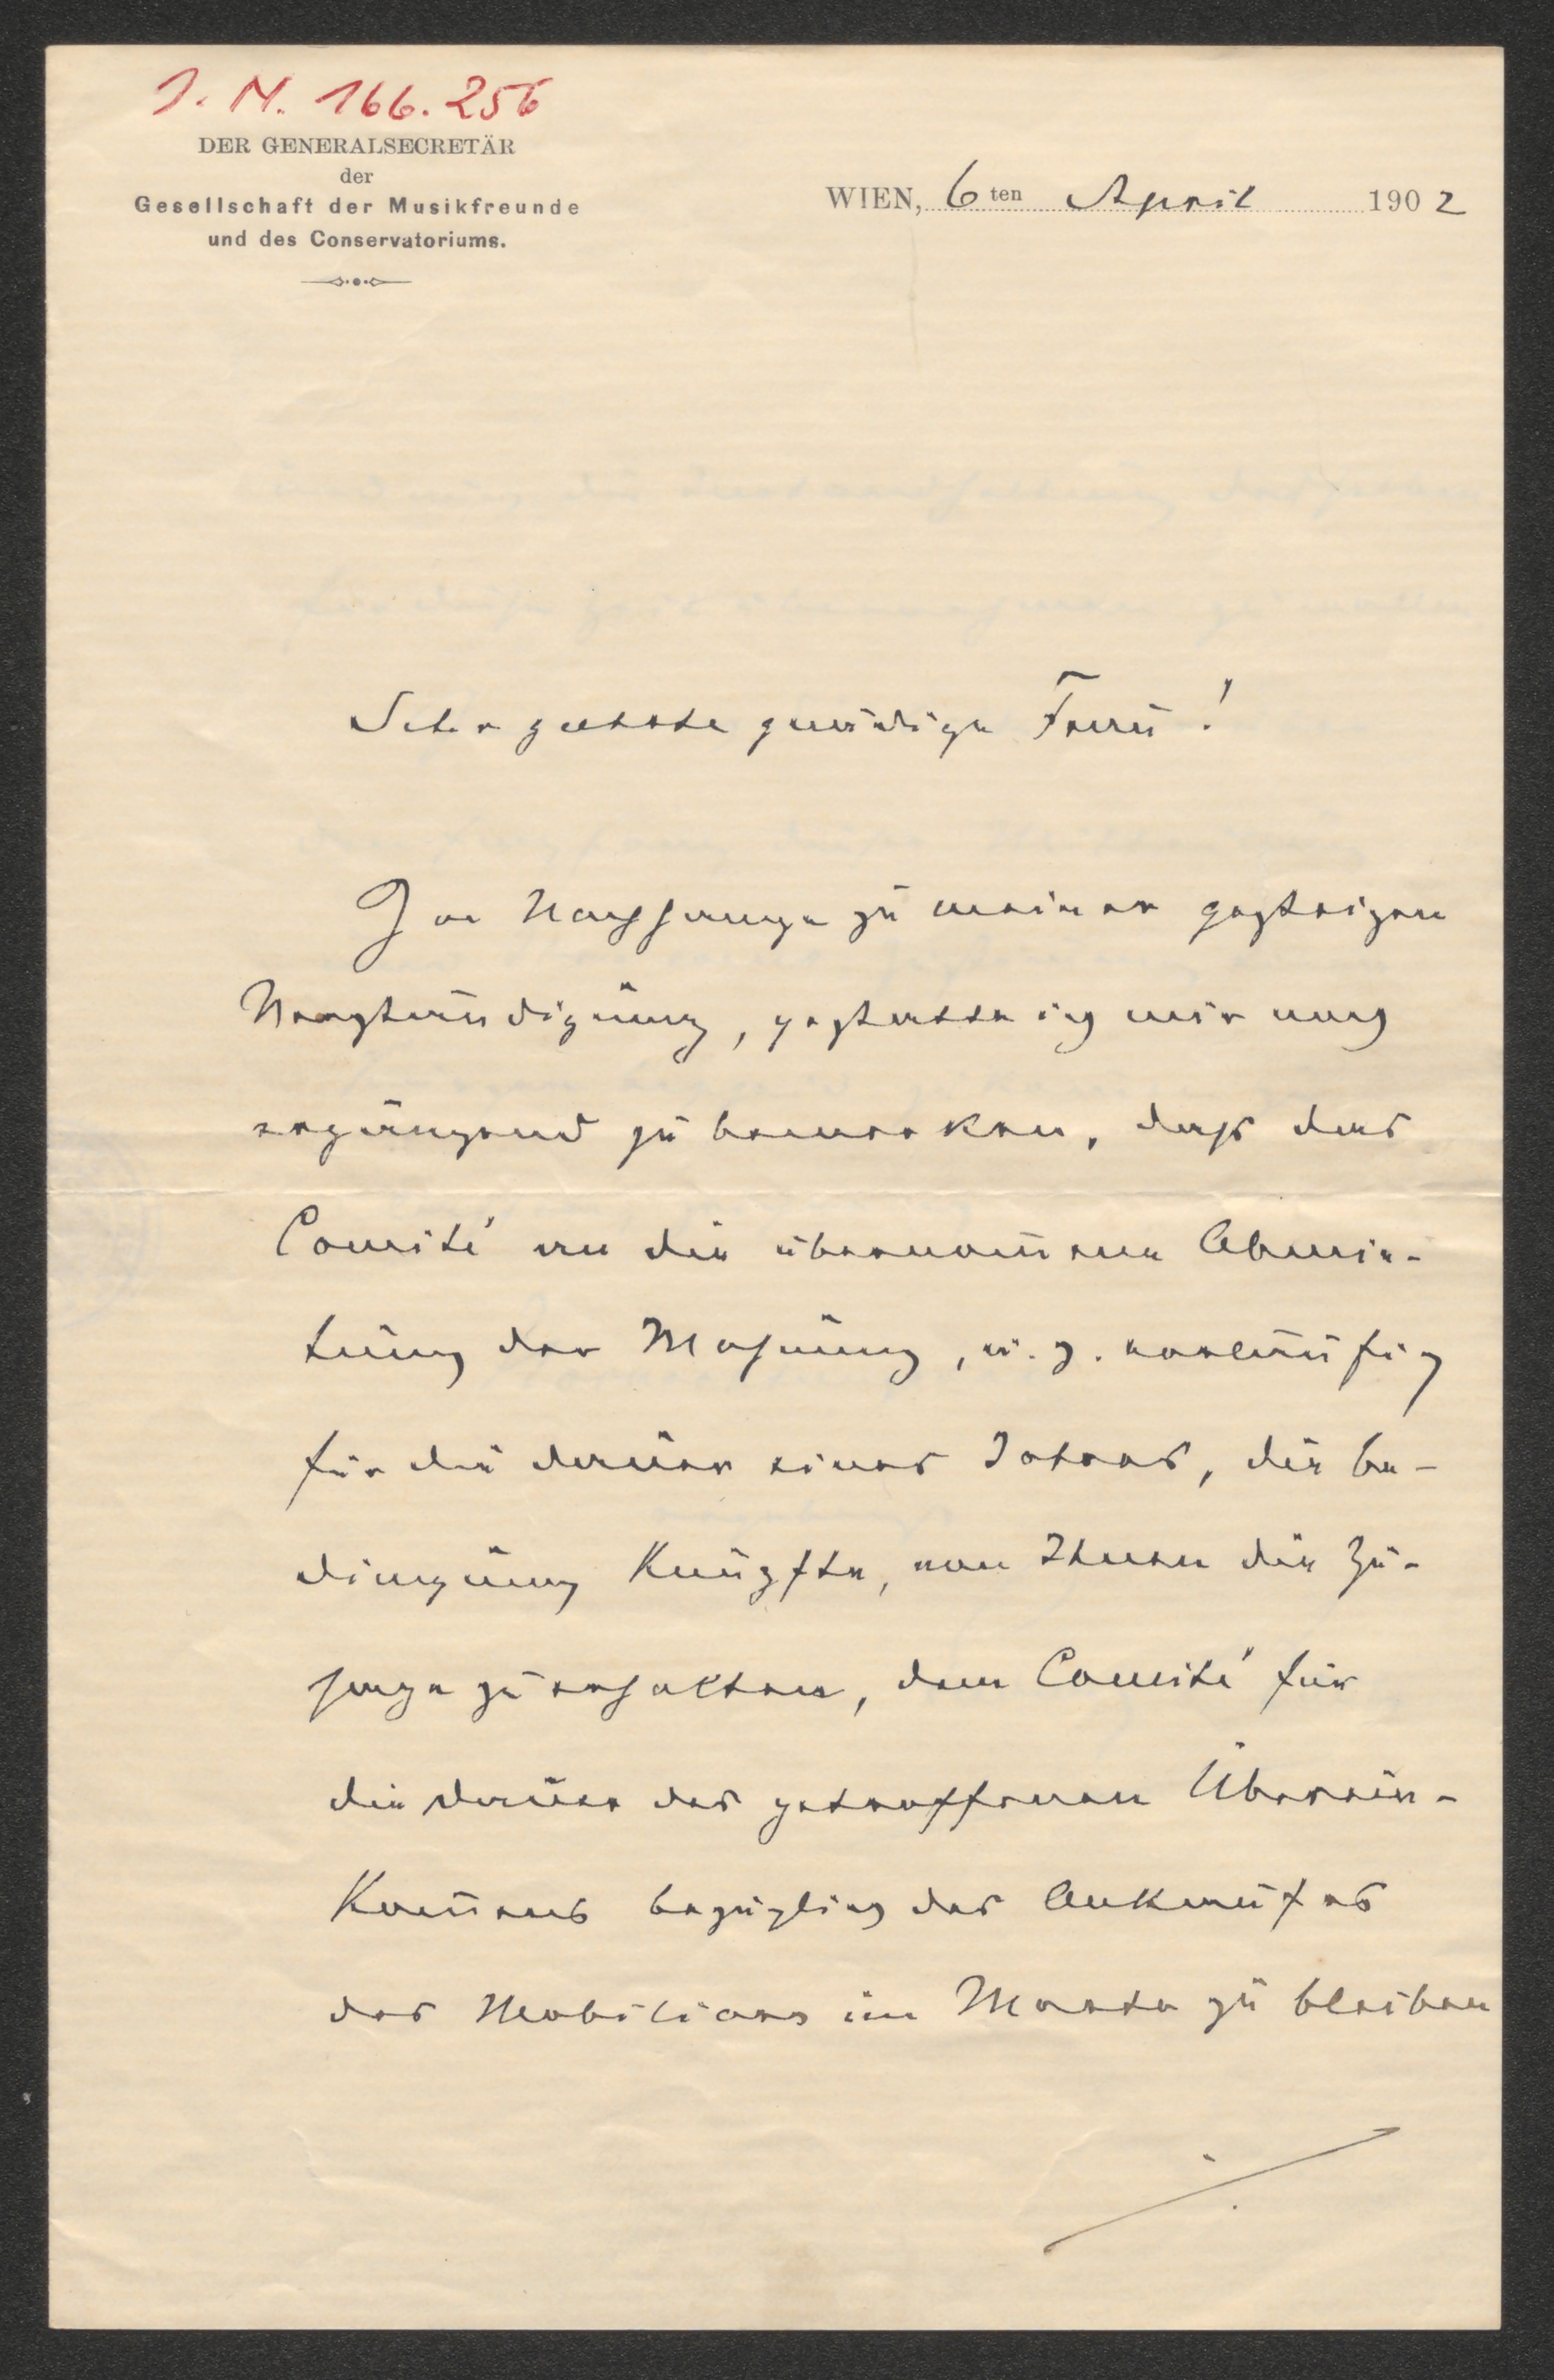 J. N. 166.256
DER GENERALSECRETÄR
der
Gesellschaft der Musikfreunde
und des Conservatoriums.
WIEN, 6 ten April 1902
Sehr geehrte gnädige Frau!
Im Nachhange zu meiner gestrigen
Verständigung, gestatte ich mir noch
ergänzend zu bemerken, dass das
Comité an die übernom̅ene Abmie-
tung der Wohnung, u. z. vorläufig
für die dauer eines Jahres, die be-
dingung knüpfte, von Ihnen die Zu-
sage zu erhalten, dem Comité für
die dauer des getroffenen Überein-
kom̅ens bezüglich des Ankaufes
des Mobiliars im Worte zu bleiben